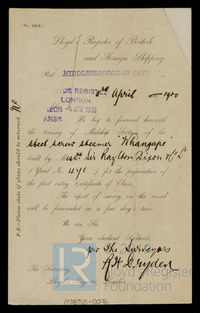 (No. 1994)
Lloyd's Register of British
and Foreign Shipping.
Port MIDDLESBROUGH-ON-TEES
7th April 1900
LONDON
We beg to forward herewith
the tracing of Midship Section of the
steel screw steamer "Whangape"
built by Messrs Sir Raylton Dixon & Co Ld
Yard No 470 for the purpose of the
first entry Certificate of Class.
The report of survey on the vessel
will be forwarded in a few days' time.
We are, Sir,
Your obedient Servants,
per The Surveyors
The Secretary,
P.S.—Please state if plans should be returned. No
Lloyd's Register
Foundation
MDB755-0076